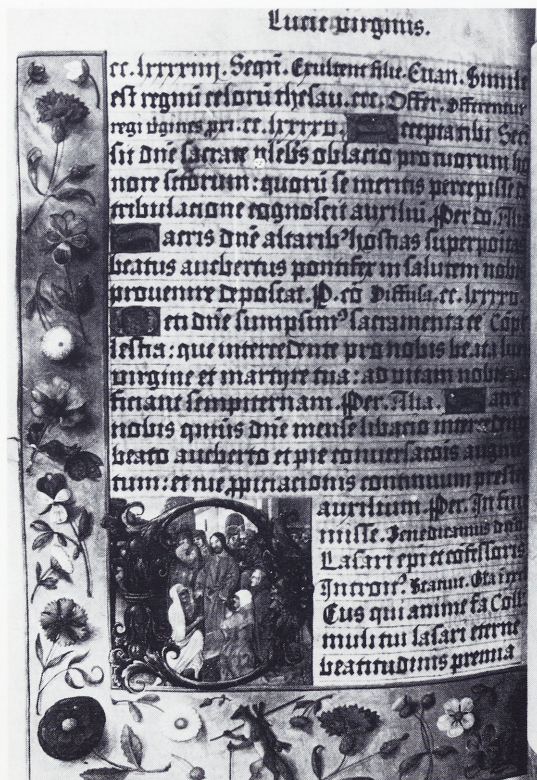 Lucie virginis.
cc. lxxxxiiij. Sequē. Exultent filie. Euan. Simile
est regnū celorū thesau. ccc. Offer. Offerentur
regi v̄gines p̄ri. cc. lxxxxv. Accepta tibi
sit dn̄e sacrate plebis oblacio pro tuorum
nore sc̄torum: quorū se meritis percepisse
tribulacione cognoscit auxiliū. Per do. Alia
Sacris dn̄e altarib⁹ hostias superpositas
beatus aucbertus pontifex in salutem nobis
prouenire deposcat. P. cō Diffusa. cc. lxxxxv.
lestia: que intercedente pro nobis beata
virgine et martyre tua: ad vitam nobis
ficiant sempiternam. Per. Alia.
nobis quesum⁹ dn̄e mense libacio
beato aucberto et pie conuersacōis
tum: et tue p̄piciacionis continuum
auxilium. Per. In fine
misse. Benedicamus dn̄o.
Lasari ep̄i et cōfessoris
Introit⁹. Statuit.
Eus qui anime fa
muli tui lasari eterne
beatitudinis premia